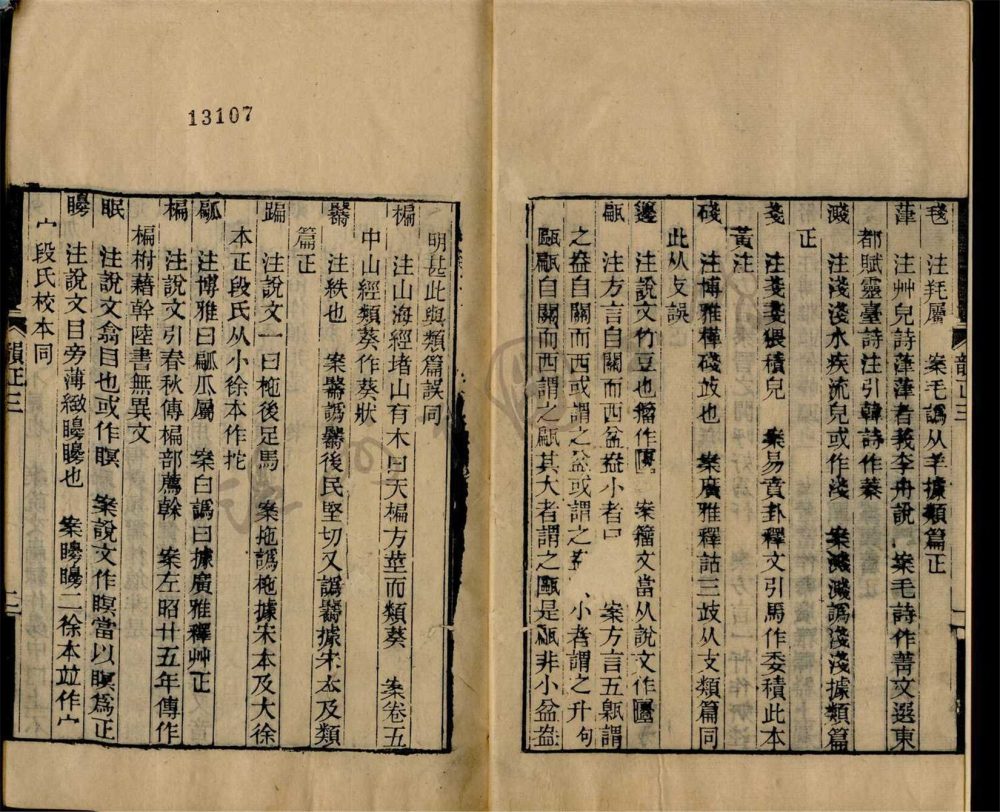 毧　注毦屬　案毛譌从羊據類篇正
葏　注艸皃詩葏葏者莪李舟說　案毛詩作菁文選東
都賦靈臺詩注引韓詩作蓁
濺　注淺淺水疾流皃或作淺　案濺濺譌淺淺據類篇
正
戔　注戔戔猥積皃　案易賁卦釋文引馬作委積此本
黃注
碊　注博雅樺碊攱也　案廣雅釋詁三攱从支類篇同
此从攴誤
籩　注說文竹豆也籀作　案籀文當从說文作
甂　注方言自關而西盆盎小者曰　案方言五甂謂
之盎自關而西或謂之盆或謂之　小者謂之升句
甌甂自關而西謂之甂其大者謂之甌是甂非小盆盎
明甚此與類篇誤同
楄　注山海經堵山有木曰天楄方莖而類葵　案卷五
中山經類葵作葵狀
注紩也　案　譌　後民堅切又譌　據宋本及類
篇正
蹁　注說文一曰柂後足馬　案拖譌柂據宋本及大徐
本正段氏从小徐本作拕
㼐　注博雅曰㼐瓜屬　案白譌曰據廣雅釋艸正
楄　注說文引春秋傳楄部薦榦　案左昭廿五年傳作
楄柎藉幹陸書無異文
眠　注說文翕目也或作瞑　案說文作瞑當以瞑爲正
矏　注說文目旁薄緻矏矏也　案矏矏二徐本竝作宀
宀段氏校本同
韻正三
二
韻正三
13107